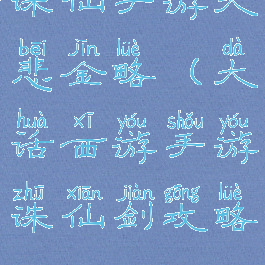 诛仙手游大
bēi jīn lüè dà
悲金略（大
huà xī yóu shǒu yóu
话西游手游
zhū xiān jiàn gōng lüè
诛仙剑攻略